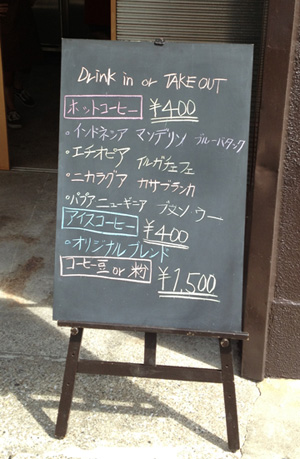 Drink in or TAKE OUT
ホットコーヒー ¥400
・インドネシア マンデリン ブルーバタック
・エチオピア イルガチェフェ
・ニカラグア カサブランカ
・パプアニューギニア プヌン・ウー
アイスコーヒー ¥400
・オリジナルブレンド
コーヒー豆 or 粉 ¥1,500